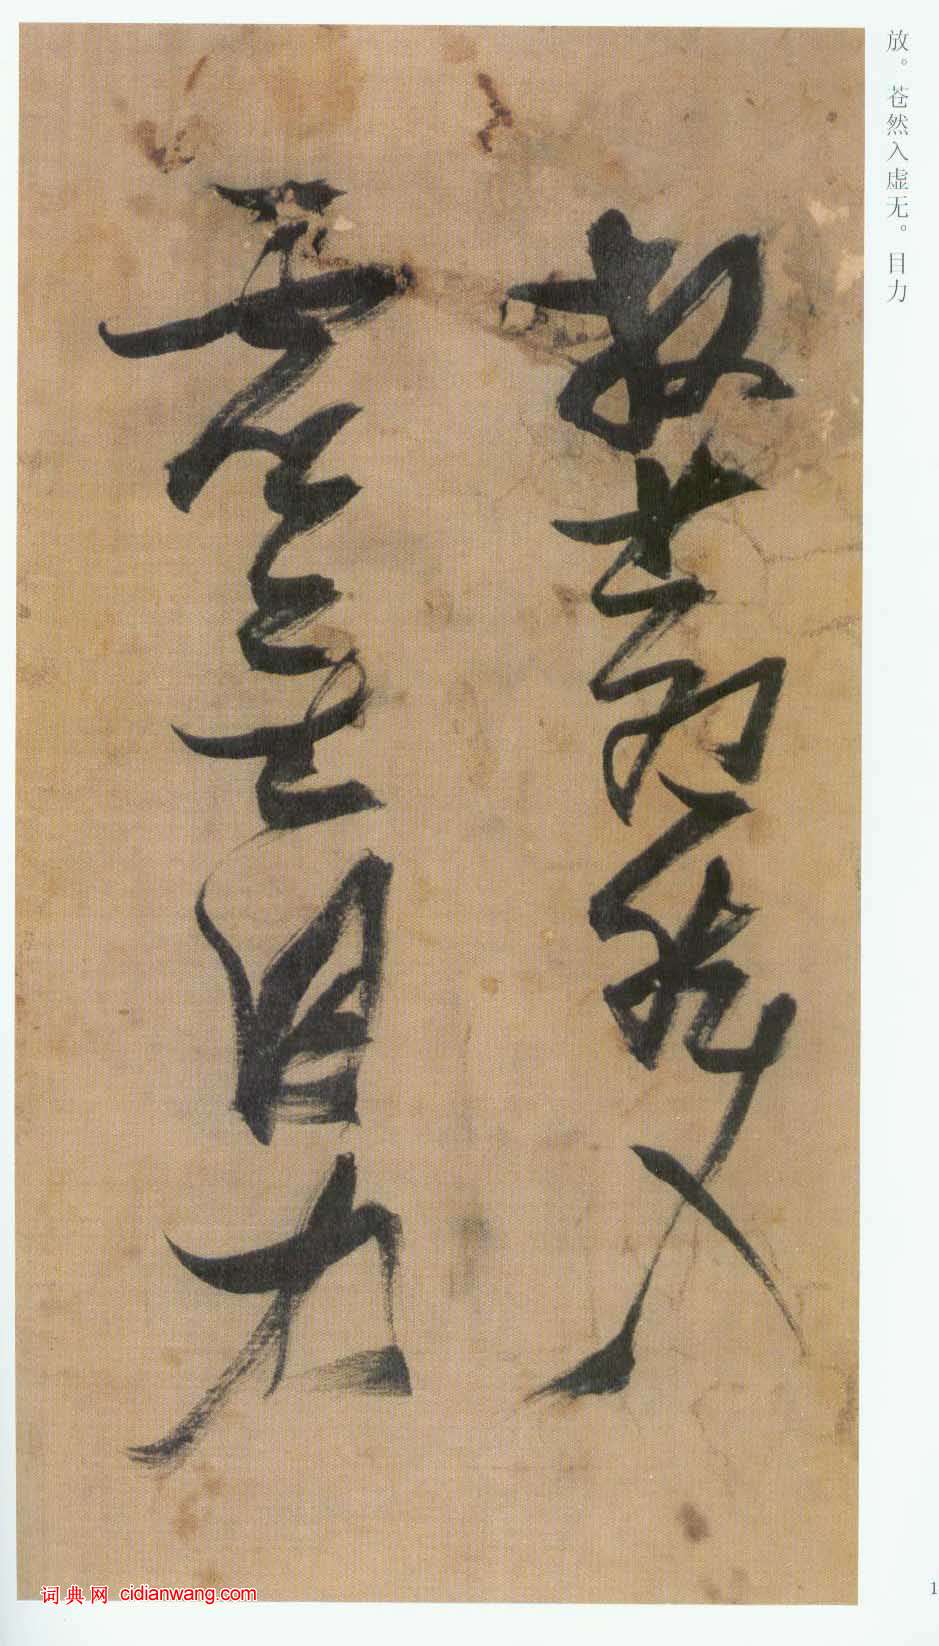 放。苍然入虚无。目力
放蒼然入
虚無目力
词典网 cidianwang.com
1